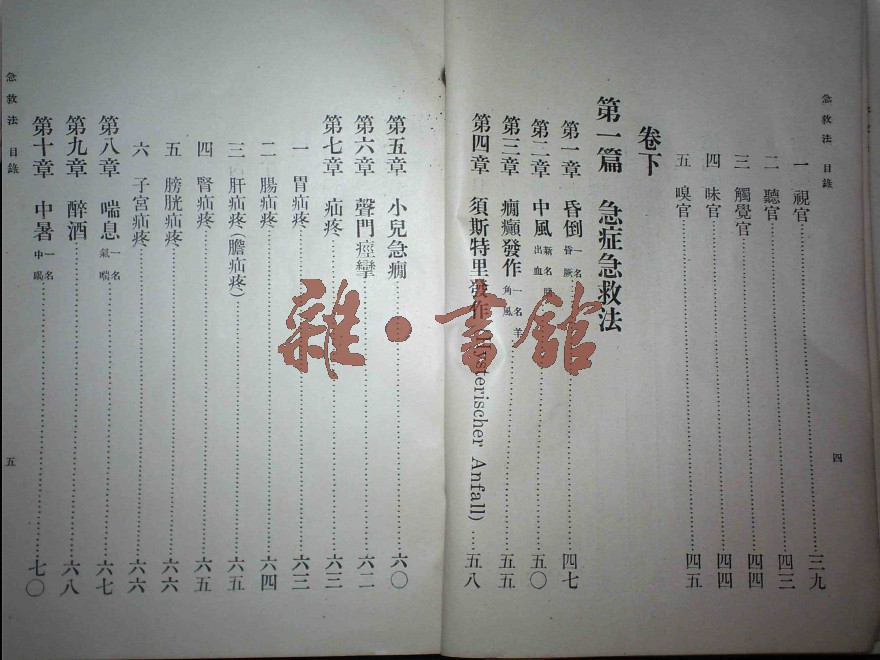 急救法 目錄
四
一 視官 三九
二 聽官 四三
三 觸覺官 四四
四 味官 四四
五 嗅官 四五
卷下
第一篇 急症急救法
第一章 昏倒 一名昏厥 四七
第二章 中風 新名腦出血 五〇
第三章 癇癲發作 一名羊角風 五五
第四章 須斯特里發作 (Hysterischer Anfall) 五八
第五章 小兒急癇 六〇
第六章 聲門痙攣 六二
第七章 疝疼 六三
一 胃疝疼 六三
二 腸疝疼 六四
三 肝疝疼(膽疝疼) 六五
四 腎疝疼 六五
五 膀胱疝疼 六六
六 子宮疝疼 六六
第八章 喘息 一名氣喘 六七
第九章 醉酒 六八
第十章 中暑 一名中暍 七〇
急救法 目錄
五
雜·書館